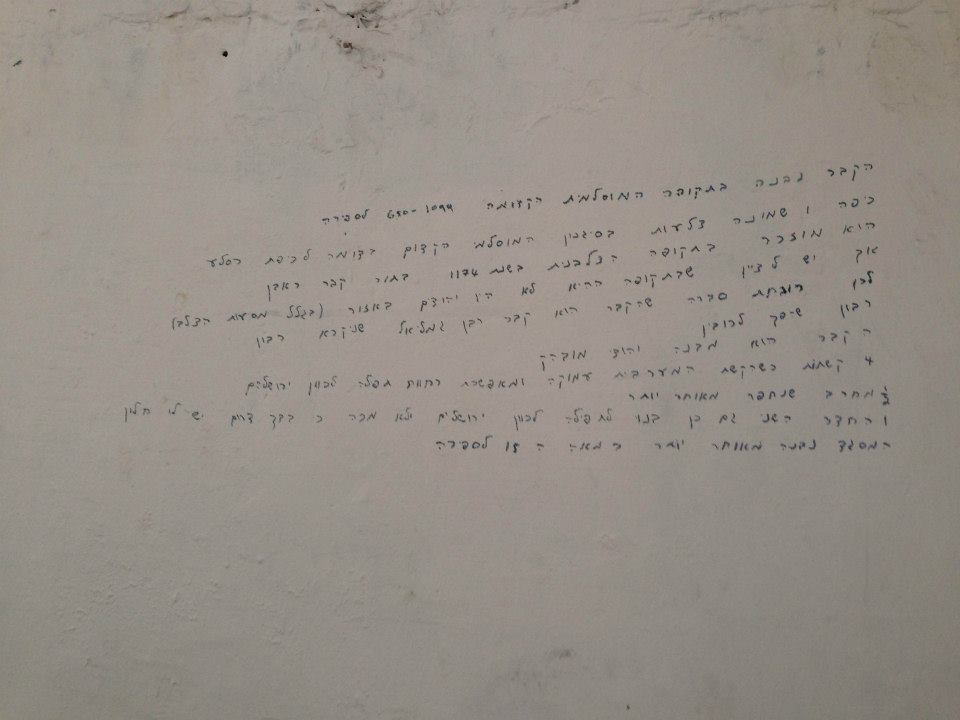 הקבר נבנה בתקופה המוסלמית הקדומה 650-1099 לספירה
כיפה ו שמונה צלעות בסיגנון המוסלמי הקדום בדומה לכיפת הסלע
הוא מוזכר בתקופה הצלבנית בשנת 1174 בתור קבר ראבן
אך יש לציין שבתקופה ההיא לא היו יהודים באזור (בגלל מסעות הצלב)
לכן רווחת סברה שהקבר הוא קבר רבן גמליאל שניקרא רבון
רבון שיפך לרובין
הקבר הוא מבנה יהודי מובהק
4 קשתות כשהקשת המערבית עמוקה ומאפשרת רחוות תפלה לכוון ירושלים
מחרב שנחפר מאוחר יותר
ו החדר השני גם כן בנו לתפילה לכוון ירושלים ולא מכה כ בצד דרום יש לי חלון
המסגד נבנה מאוחר יותר במאה ה 15 לספירה